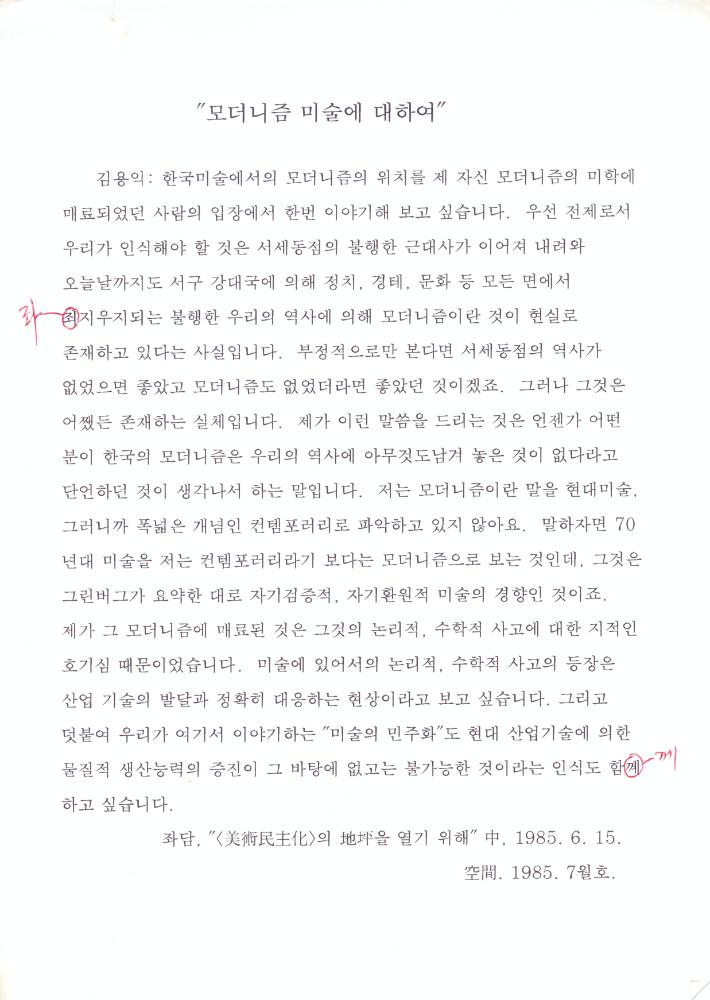 "모더니즘 미술에 대하여"
김용익: 한국미술에서의 모더니즘의 위치를 제 자신 모더니즘의 미학에
매료되었던 사람의 입장에서 한번 이야기해 보고 싶습니다. 우선 전제로서
우리가 인식해야 할 것은 서세동점의 불행한 근대사가 이어져 내려와
오늘날까지도 서구 강대국에 의해 정치, 경테, 문화 등 모든 면에서
좌
죄지우지되는 불행한 우리의 역사에 의해 모더니즘이란 것이 현실로
존재하고 있다는 사실입니다. 부정적으로만 본다면 서세동점의 역사가
없었으면 좋았고 모더니즘도 없었더라면 좋았던 것이겠죠. 그러나 그것은
어쨌든 존재하는 실체입니다. 제가 이런 말씀을 드리는 것은 언젠가 어떤
분이 한국의 모더니즘은 우리의 역사에 아무것도남겨 놓은 것이 없다라고
단언하던 것이 생각나서 하는 말입니다. 저는 모더니즘이란 말을 현대미술,
그러니까 폭넓은 개념인 컨템포러리로 파악하고 있지 않아요. 말하자면 70
년대 미술을 저는 컨템포러리라기 보다는 모더니즘으로 보는 것인데, 그것은
그린버그가 요약한 대로 자기검증적, 자기환원적 미술의 경향인 것이죠.
제가 그 모더니즘에 매료된 것은 그것의 논리적, 수학적 사고에 대한 지적인
호기심 때문이었습니다. 미술에 있어서의 논리적, 수학적 사고의 등장은
산업 기술의 발달과 정확히 대응하는 현상이라고 보고 싶습니다. 그리고
덧붙여 우리가 여기서 이야기하는 "미술의 민주화"도 현대 산업기술에 의한
물질적 생산능력의 증진이 그 바탕에 없고는 불가능한 것이라는 인식도 함께
께
하고 싶습니다.
좌담, "〈美術民主化〉의 地坪을 열기 위해" 中, 1985. 6. 15.
空間. 1985. 7월호.